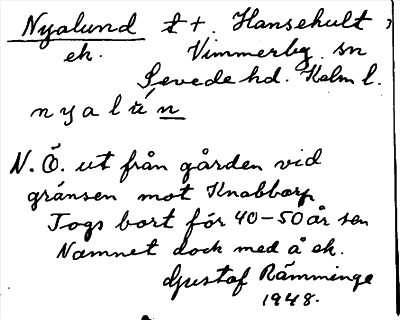 Nyalund t t. Hansehult i
ek. Vimmerby sn
Sevede hd. Kalm l.
n y a l ú n
N.Ö. ut från gården vid
gränsen mot Knabbarp
Togs bort för 40-50 år sen
Namnet dock med å ek.
Gustaf Rämminge
1948.